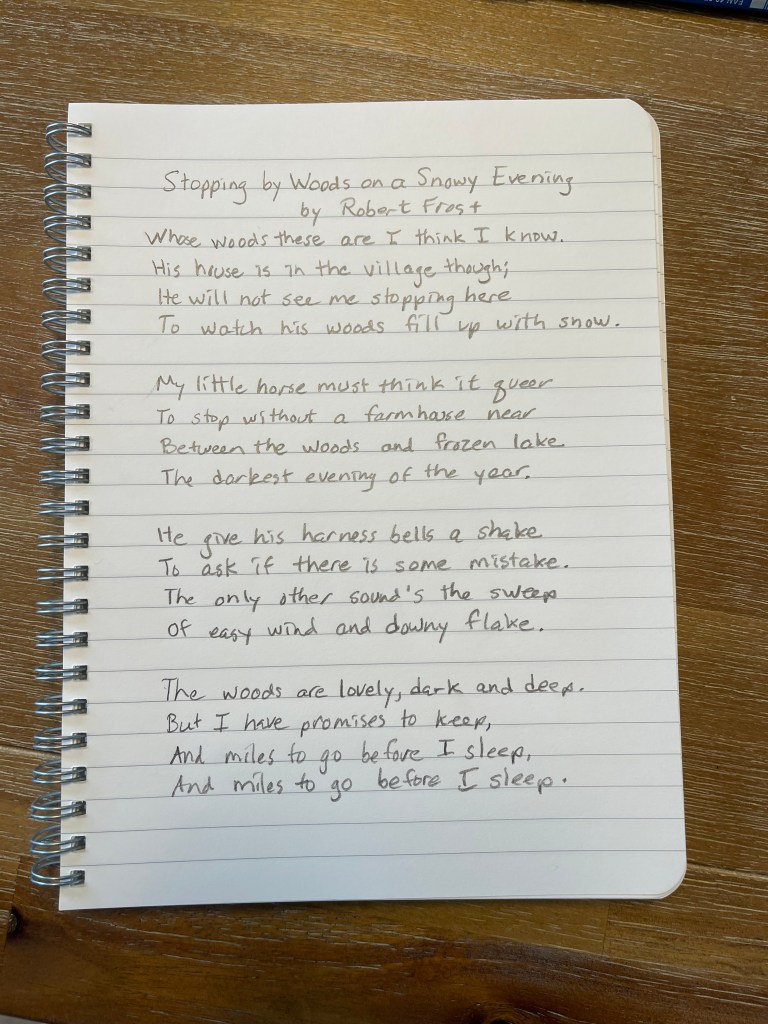 Stopping by Woods on a Snowy Evening
by Robert Frost
Whose woods these are I think I know.
His house is in the village though;
He will not see me stopping here
To watch his woods fill up with snow.
My little horse must think it queer
To stop without a farmhouse near
Between the woods and frozen lake
The darkest evening of the year.
He give his harness bells a shake
To ask if there is some mistake.
The only other sound's the sweep
Of easy wind and downy flake.
The woods are lovely, dark and deep.
But I have promises to keep,
And miles to go before I sleep,
And miles to go before I sleep.